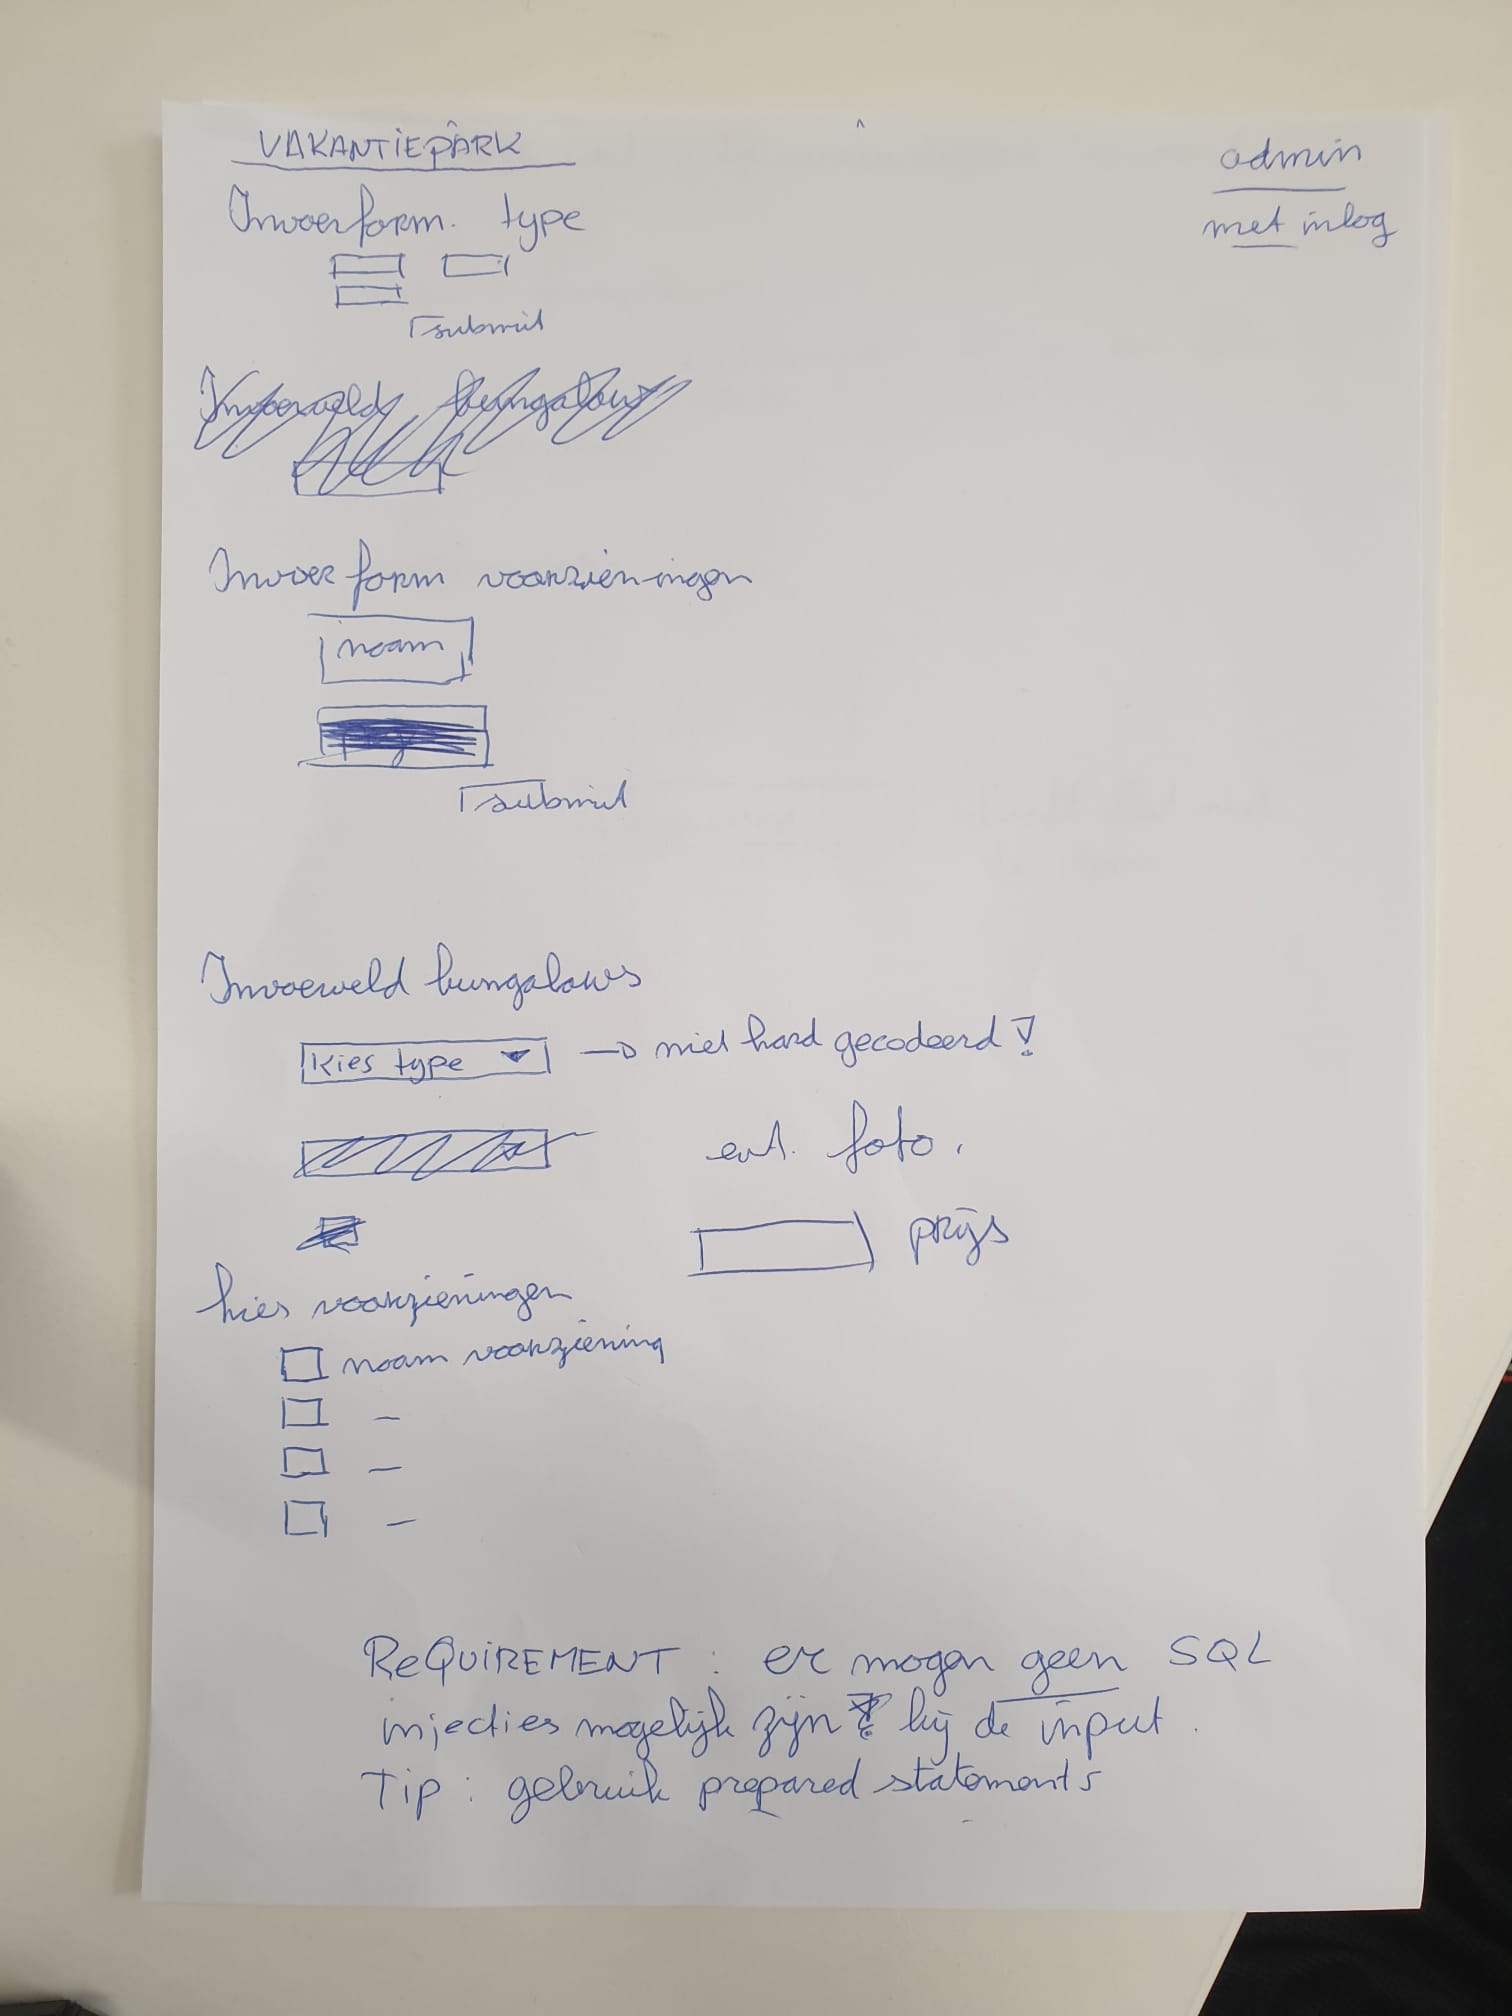 VAKANTIEPARK
admin
met inlog
Invoerform. type
submit
Invoerveld bungalows
Invoer form voorzieningen
naam
submit
Invoerveld bungalows
Kies type
→ niet hard gecodeerd!
evt. foto.
prijs
kies voorzieningen
naam voorziening
-
-
-
REQUIREMENT : er mogen geen SQL
injecties mogelijk zijn bij de input.
Tip : gebruik prepared statements